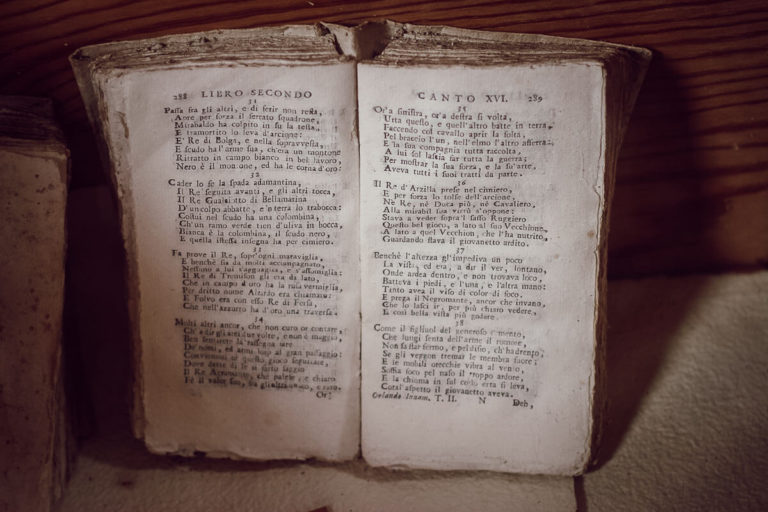 288 LIBRO SECONDO
31
Passa fra gli altri, e di ferir non resta,
Apre per forza il serrato squadrone,
Mirabaldo ha colpito in su la testa,
E tramortito lo leva d'arcione:
E' Re di Bolga, e nella sopravvesta,
E scudo ha l'arme sua, ch'era un montone
Ritratto in campo bianco in bel lavoro,
Nero è il montone, ed ha le corna d'oro.
32
Cader lo fe la spada adamantina,
Il Re seguita avanti, e gli altri tocca,
Il Re Gualciotto di Bellamarina
D'un colpo abbatte, e 'n terra lo trabocca:
Costui nel scudo ha una colombina,
Ch'un ramo verde tien d'uliva in bocca,
Bianca è la colombina, il scudo nero,
E quella istessa insegna ha per cimiero.
33
Fa prove il Re, sopr'ogni maraviglia,
E benchè sia da molti accompagnato,
Nessuno a lui s'agguaglia, e s'assomiglia:
Il Re di Tremison gli era da lato,
Che in campo d'oro ha la rosa vermiglia,
Per dritto nome Alzirdo era chiamato:
E Folvo era con esso Re di Fersa,
Che nell'azzurro ha d'oro una traversa.
34
Molti altri ancor, che non curo or contare,
Ch'a dir gli anzi due volte, e non è maggio,
Ben sentirete la rassegna fare
De' nomi, ed armi lor al gran passaggio:
Conviemmi or questo gioco seguitare,
Dove
Il Re Agramante, che palese, e chiaro
Fè il valor suo, fra gli altri
Or:
CANTO XVI. 289
35
Or'a sinistra, or'a destra si volta,
Urta questo, e quell'altro batte in terra,
Facendo col cavallo aprir la folta,
Pel braccio l'un, nell'elmo l'altro afferra:
E la sua compagnia tutta raccolta,
A lui sol lascia far tutta la guerra;
Per mostrar la sua forza, e la su'arte
Aveva tutti i suoi tratti da parte.
36
Il Re d'Arzilla prese nel cimiero,
E per forza lo tolse dell'arcione,
Nè Re, nè Duca più, nè Cavaliero,
Alla mirabil sua virtù s'oppone:
Stava a veder sopra'l sasso Ruggiero
Questo bel gioco, a lato al suo Vecchione,
A lato a quel Vecchion, che l'ha nutrito,
Guardando stava il giovanetto ardito.
37
Benchè l'altezza gl'impediva un poco
La vista, ed era, a dir il ver, lontano,
Onde ardea dentro, e non trovava loco,
Batteva i piedi, e l'una, e l'altra mano:
Tinto avea il viso di color di foco,
E prega il Negromante, ancor che invano,
Che lo lasci ir, per più chiaro vedere,
E così bella vista più godere.
38
Come il figliuol del generoso armento,
Che lungi senta dell'arme il romore,
Non sa star fermo, e pel disio, ch'ha drento,
Se gli veggon tremar le membra fuore;
E le mobili orecchie vibra al vento,
Soffia foco pel naso il troppo ardore,
E la chioma in sul collo erta si leva,
Cotal'aspetto il giovanetto aveva.
Orlando Innam. T. II. N Deh,